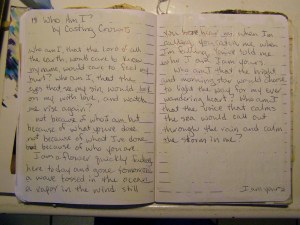 Who Am I?
by Casting Crowns
Who am I, that the Lord of all
the earth, would care to know
my name, would care to feel my
hurt? Who am I, that the
eyes that see my sin, would look
on my with love, and watch
me rise again?
not because of who I am, but
because of what you've done
not because of what I've done,
but because of who you are.
I am a flower quickly fading
here today and gone tomorrow
a wave tossed in the ocean
a vapor in the wind still
you hear me when I'm
calling, you catch me when
I'm falling, you've told me
who I am I am yours.
Who am I that the bright
and morning star would choose
to light the way for my ever
wandering heart? Who am I
that the voice that calms
the sea would call out
through the rain and calm
the storm in me?
I am yours